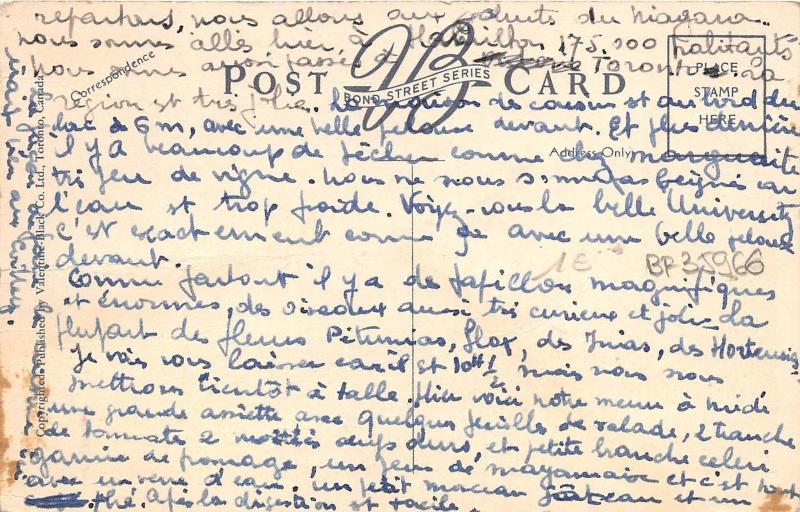 repartons, nous allons aux chutes du Niagara..
nous sommes allés hier à Hamilton 175.000 habitants
nous sommes aussi passé à Toronto. La
région est très jolie. La maison de cousin est au bord du
lac à 6 m, avec une belle pelouse devant. Et plus derrière
il y a beaucoup de pêcher comme les marguerite
très peu de vigne. Nous ne nous sommes pas beigné car
l'eau est trop froide. Voyez-vous la belle University
c'est exactement comme ça avec une belle pelouse
devant.
Comme partout il y a de papillon magnifiques
et énormes, des oiseaux aussi très curieux et jolis. La
plupart des fleurs Pétunias, flox, des Zinias, des Hortensias
Je vais vous laisser car il est 10H 1/2, mais nous nous
mettrons bientôt à table. Hier voici notre menu à midi
une grande assiette avec quelques feuilles de salade, 2 tranche
de tomate 2 moitiés oeufs durs, et petite branche celeri
garnie de fromage, un peu de mayonnaise et c'est tout
avec un verre d'eau. un petit morceau gâteau et un
thé. Après la digestion est facile.
Correspondence
POST CARD
VB
BOND STREET SERIES
PLACE
STAMP
HERE
Address Only
Copyrighted & Published by Valentine-Black Co. Ltd., Toronto, Canada
1E
BP35966